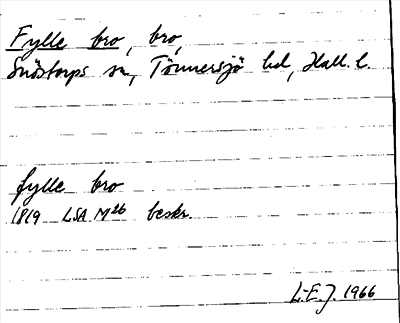 Fylle bro, bro,
Snöstorps sn, Tönnersjö hd, Hall. l.
fylle bro
1819 LSA M26 beskr.
L-E.J. 1966